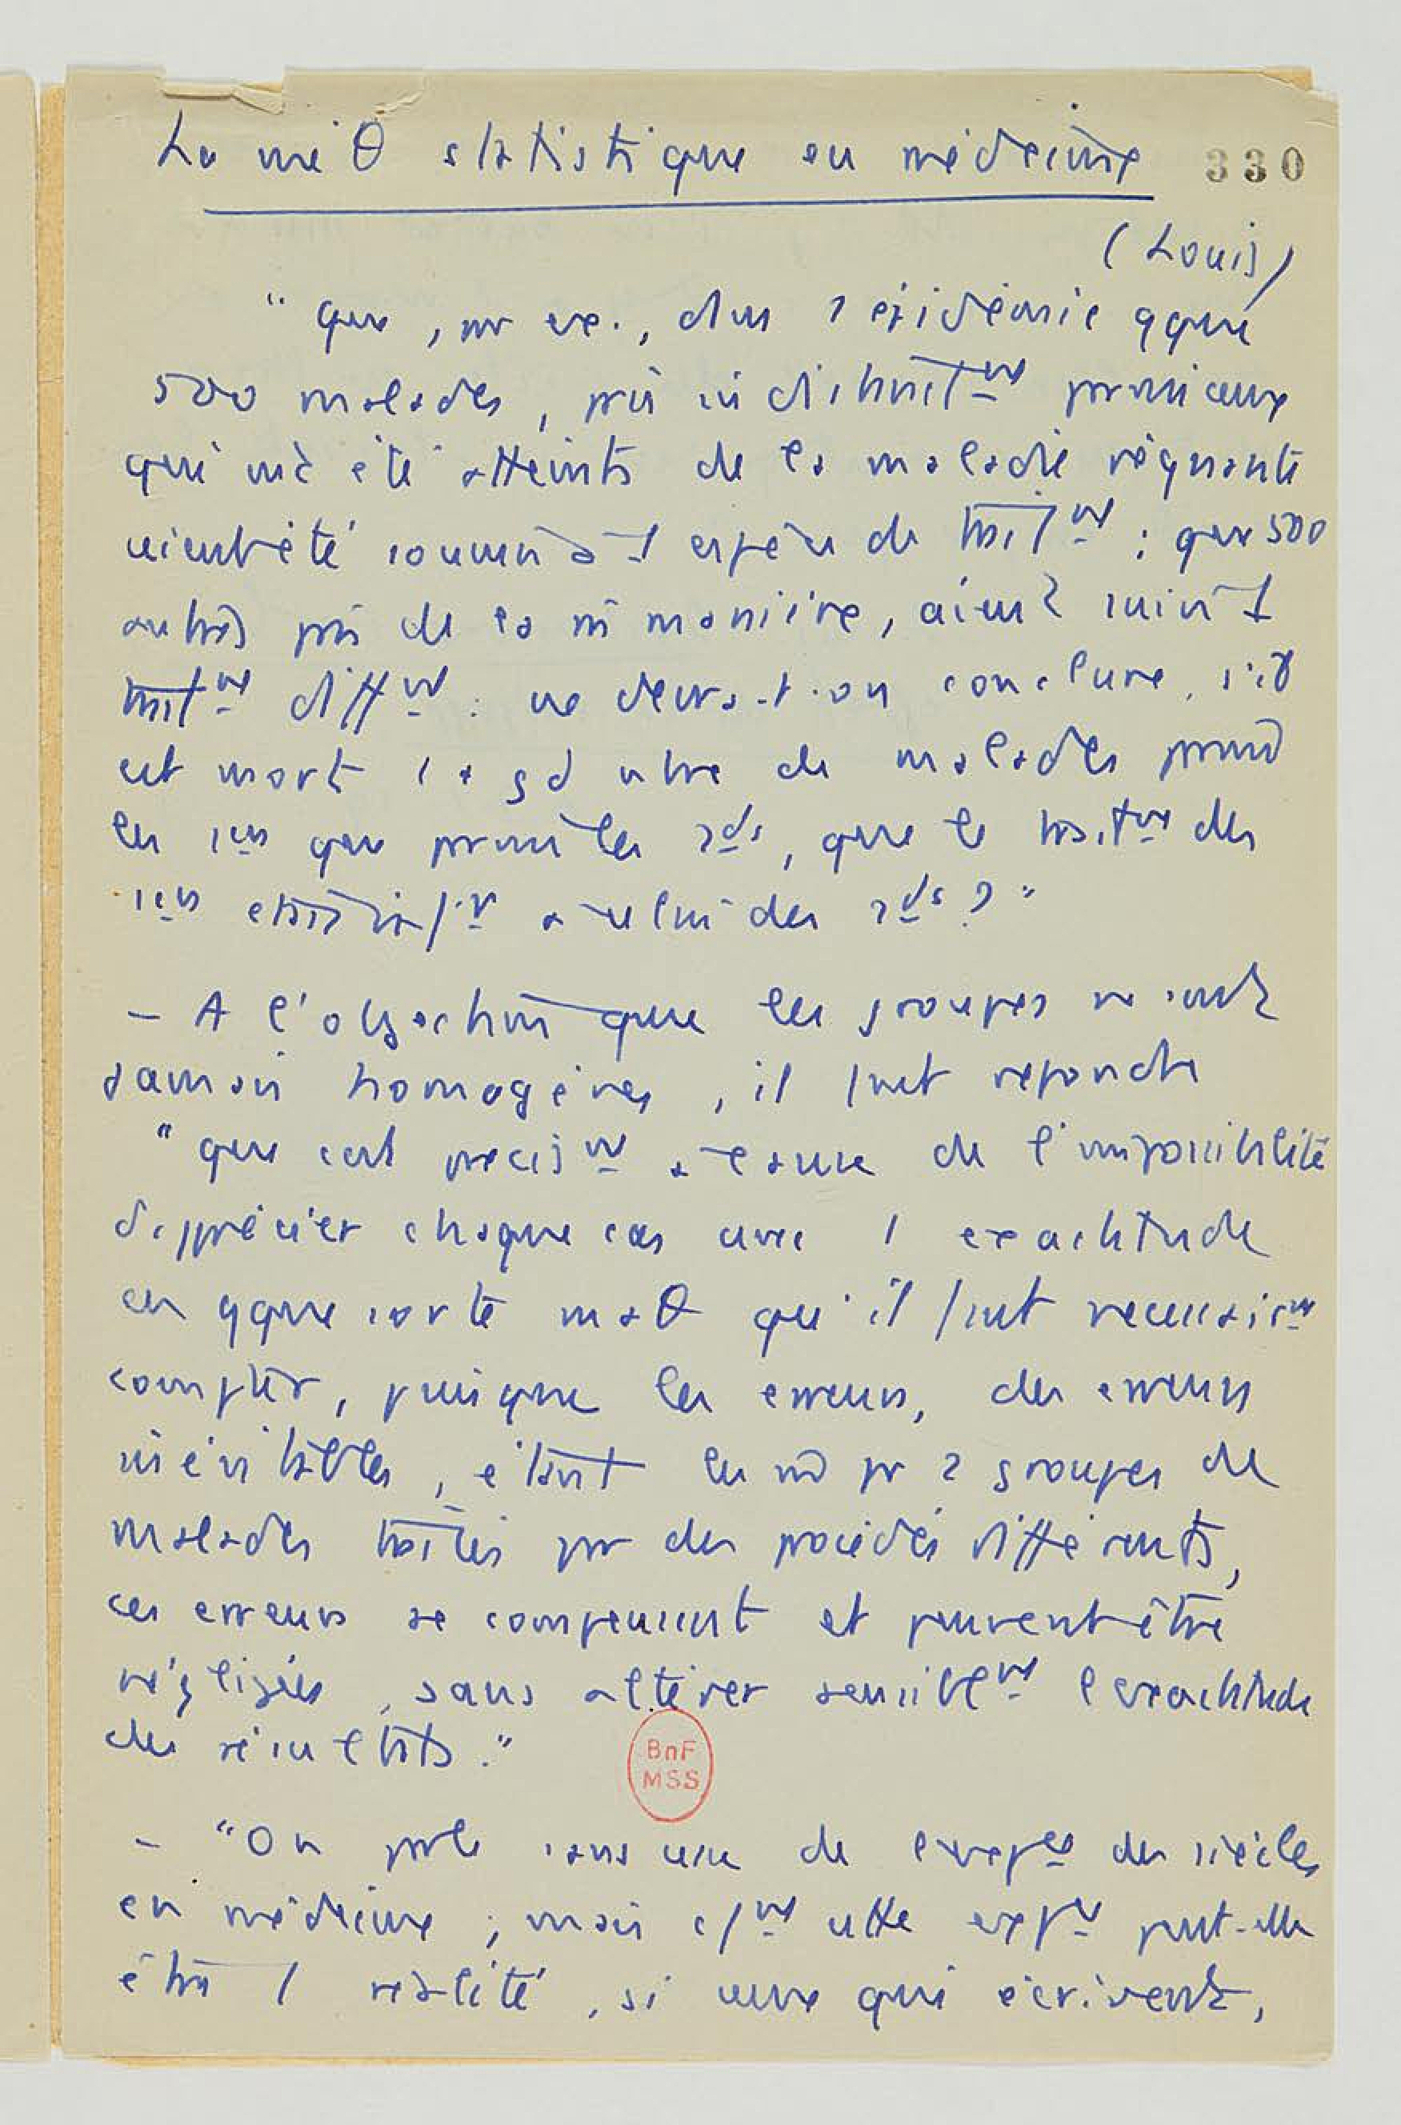 La méθ statistique en médecine
330
(Louis)
"que, pr ex., dans 1 épidémie qque
500 malades, pris indistinctmt parmi ceux
qui ont été atteints de la maladie régnante
aient été soumis à 1 espèce de traitmt ; que 500
autres pris de la m manière, aient suivi 1
traitmt différt : ne devra-t-on conclure, s'il
est mort 1 + gd nbre de malades parmi
les 1ers que parmi les 2ds, que le traitmt des
1ers était infr à celui des 2ds ?"
– A l'objection que les groupes ne sont
jamais homogènes, il faut répondre
"que c'est précismt à cause de l'impossibilité
d'apprécier chaque cas avec 1 exactitude
en qque sorte maθ qu'il faut nécessairmt
compter, puisque les erreurs, des erreurs
inévitables, étant les m pr 2 groupes de
malades traités par des procédés différents,
ces erreurs se compensent et peuvent être
négligées, sans altérer sensiblmt l'exactitude
des résultats."
BnF
MSS
– "On parle sans cesse de l'expce des siècles
en médecine ; mais commt cette expce peut-elle
être 1 réalité, si ceux qui écrivent,